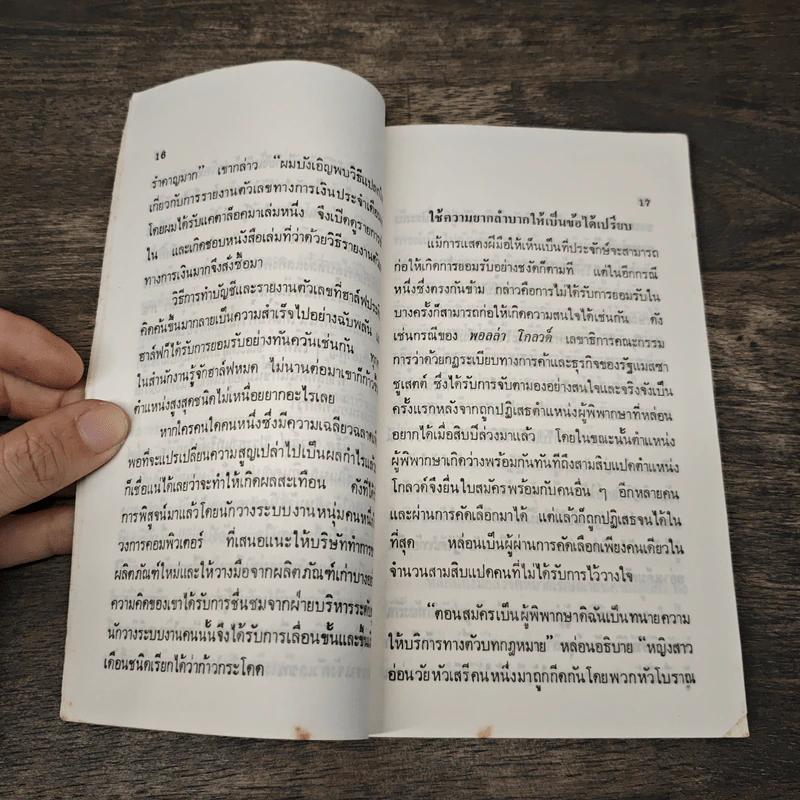 16
รำคาญมาก" เขากล่าว "ผมบังเอิญพบวิธีแปลก
เกี่ยวกับการรายงานตัวเลขทางการเงินประจำเดือน
โดยผมได้รับแคตาล็อคมาเล่มหนึ่ง จึงเปิดดูรายการ
ใน และเกิดชอบหนังสือเล่มที่ว่าด้วยวิธีรายงานตัว
ทางการเงินมากจึงสั่งซื้อมา
วิธีการทำบัญชีและรายงานตัวเลขที่ฮาล์ฟ
คิดค้นขึ้นมากลายเป็นความสำเร็จไปอย่างฉับพลัน
ฮาล์ฟก็ได้รับการยอมรับอย่างทันควันเช่นกัน
ในสำนักงานรู้จักฮาล์ฟหมด ไม่นานต่อมาเขาก็ก้าว
ตำแหน่งสูงสุดชนิดไม่เหนื่อยยากอะไรเลย
หากใครคนใดคนหนึ่งซึ่งมีความเฉลียวฉลาด
พอที่จะแปรเปลี่ยนความสูญเปล่าไปเป็นผลกำไรแล้ว
ก็เชื่อแน่ได้เลยว่าจะทำให้เกิดผลสะเทือน ดังที่ได้
การพิสูจน์มาแล้วโดยนักวางระบบงานหนุ่มคนหนึ่ง
วงการคอมพิวเตอร์ ที่เสนอแนะให้บริษัททำการ
ผลิตภัณฑ์ใหม่และให้วางมือจากผลิตภัณฑ์เก่าบาง
ความคิดของเขาได้รับการชื่นชมจากฝ่ายบริหารระดับ
นักวางระบบงานคนนั้นจึงได้รับการเลื่อนขั้นและขึ้น
เดือนชนิดเรียกได้ว่าก้าวกระโดด
17
ใช้ความยากลำบากให้เป็นข้อได้เปรียบ
แม้การแสดงฝีมือให้เห็นเป็นที่ประจักษ์จะสามารถ
ก่อให้เกิดการยอมรับอย่างชะงัดก็ตามที แต่ในอีกกรณี
หนึ่งซึ่งตรงกันข้าม กล่าวคือการไม่ได้รับการยอมรับใน
บางครั้งก็สามารถก่อให้เกิดความสนใจได้เช่นกัน ดัง
เช่นกรณีของ พอลล่า โกลวด์ เลขาธิการคณะกรรม
การว่าด้วยกฎระเบียบทางการค้าและธุรกิจของรัฐแมสซา
ชูเสตต์ ซึ่งได้รับการจับตามองอย่างสนใจและจริงจังเป็น
ครั้งแรกหลังจากถูกปฏิเสธตำแหน่งผู้พิพากษาที่หล่อน
อยากได้เมื่อสิบปีล่วงมาแล้ว โดยในขณะนั้นตำแหน่ง
ผู้พิพากษาเกิดว่างพร้อมกันทันทีถึงสามสิบแปดตำแหน่ง
โกลวด์จึงยื่นใบสมัครพร้อมกับคนอื่น ๆ อีกหลายคน
และผ่านการคัดเลือกมาได้ แต่แล้วก็ถูกปฏิเสธจนได้ใน
ที่สุด หล่อนเป็นผู้ผ่านการคัดเลือกเพียงคนเดียวใน
จำนวนสามสิบแปดคนที่ไม่ได้รับการไว้วางใจ
"ตอนสมัครเป็นผู้พิพากษาดิฉันเป็นทนายความ
ให้บริการทางตัวบทกฎหมาย" หล่อนอธิบาย "หญิงสาว
อ่อนวัยหัวเสรีคนหนึ่งมาถูกกีดกันโดยพวกหัวโบราณ